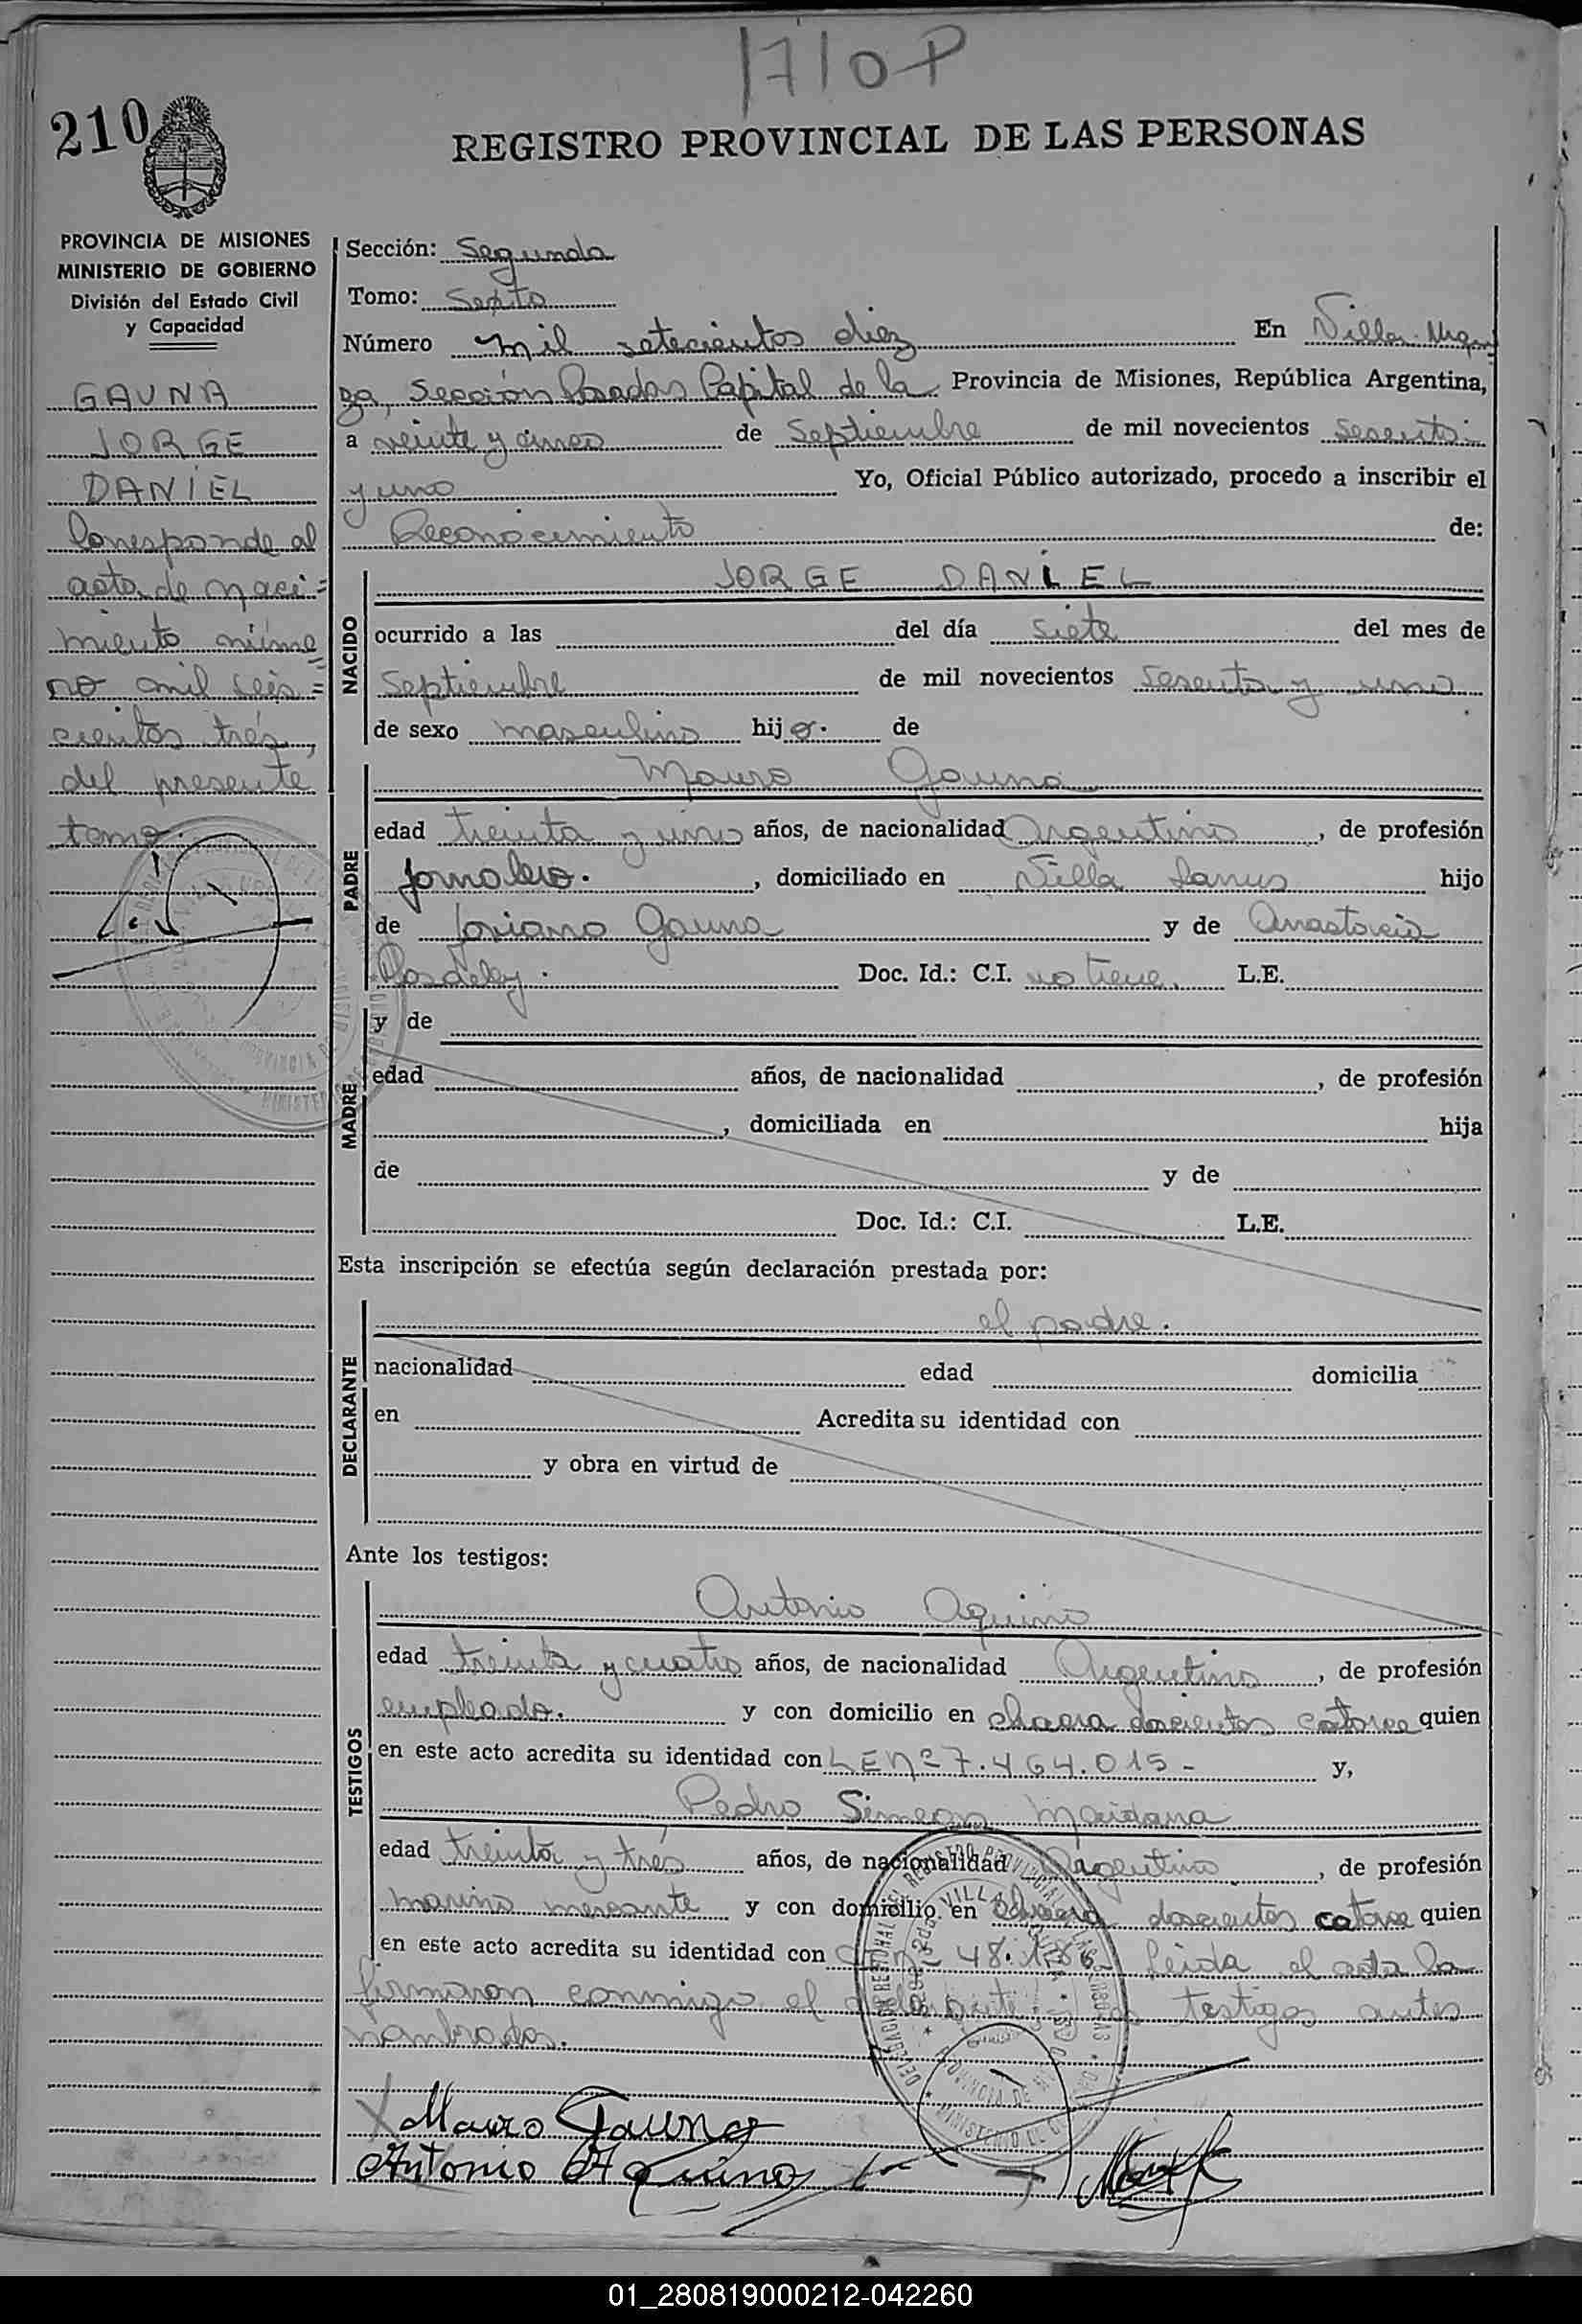 1710 P
210
REGISTRO PROVINCIAL DE LAS PERSONAS
PROVINCIA DE MISIONES
MINISTERIO DE GOBIERNO
División del Estado Civil
y Capacidad
GAUNA
JORGE
DANIEL
Corresponde al
acta de naci=
miento núme=
ro mil seis=
cientos trés,
del presente
tomo.
Sección: Segunda
Tomo: Sexto
Número mil setecientos diez En Villa Urqui
za, Sección Posadas Capital de la Provincia de Misiones, República Argentina,
a veinte y cinco de Septiembre de mil novecientos sesenta
y uno Yo, Oficial Público autorizado, procedo a inscribir el
Reconocimiento de:
NACIDO
JORGE DANIEL
ocurrido a las del día siete del mes de
Septiembre de mil novecientos sesenta y uno
de sexo masculino hijo. de
PADRE
Mauro Gauna
edad treinta y uno años, de nacionalidad Argentino, de profesión
jornalero. , domiciliado en Villa Lanus hijo
de Gauna y de Anastacia
Doc. Id.: C.I. no tiene. L.E.
MADRE
y de
edad años, de nacionalidad , de profesión
, domiciliada en hija
de y de
Doc. Id.: C.I. L.E.
Esta inscripción se efectúa según declaración prestada por:
DECLARANTE
el padre.
nacionalidad edad domicilia
en Acredita su identidad con
y obra en virtud de
Ante los testigos:
TESTIGOS
Antonio Aquino
edad treinta y cuatro años, de nacionalidad Argentino, de profesión
empleado. y con domicilio en chacra doscientos catorce quien
en este acto acredita su identidad con L E Nº 7.464.015- y,
Pedro Simeon Maidana
edad treinta y trés años, de nacionalidad Argentino, de profesión
marino mercante y con domicilio en chacra doscientos catorce quien
en este acto acredita su identidad con 48.186 Leida el acta la
firmaron conmigo el declarante testigos antes
nombrados.
Mauro Gauna
Antonio Aquino
01_280819000212-042260